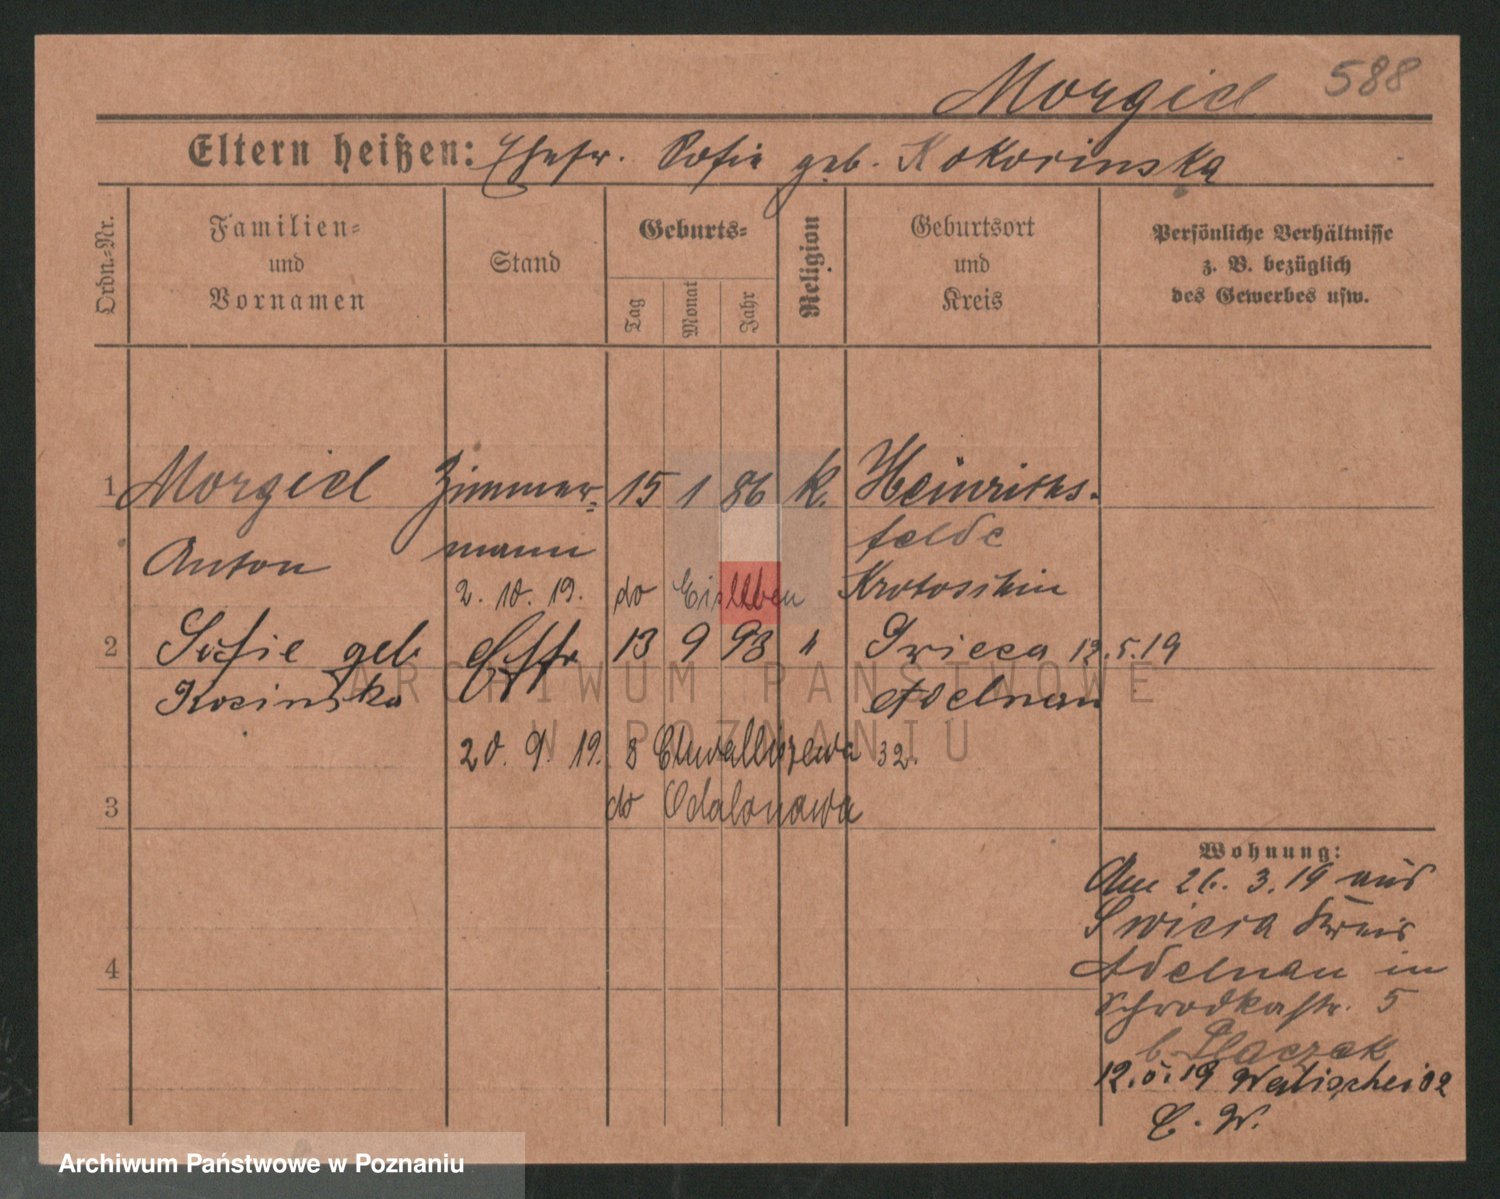 Morgiel 588
Eltern heißen: Ehefr. Sofie geb. Kokorinska
Ordn.-Nr.
Familien-
und
Vornamen
Stand
Geburts-
Tag
Monat
Jahr
Religion
Geburtsort
und
Kreis
Persönliche Verhältnisse
z. B. bezüglich
des Gewerbes usw.
1 Morgiel Zimmer- 15 1 86 K. Heinrichs-
Anton mann felde
2. 10. 19. do Eisleben Krotoschin
2 Sofie geb Ehfr 13 9 93 " 12.5.19
Kosinska Adelnau
20. 9. 19. 8 Chwaliszewo 32.
do Odalonowa
3
4
Wohnung:
Am 26. 3. 19 aus
Swieca Kreis
Adelnau in
Schrodkastr. 5
b. Placzek
12.5.19 Wallischei 32
C. W.
ARCHIWUM PAŃSTWOWE
W POZNANIU
Archiwum Państwowe w Poznaniu